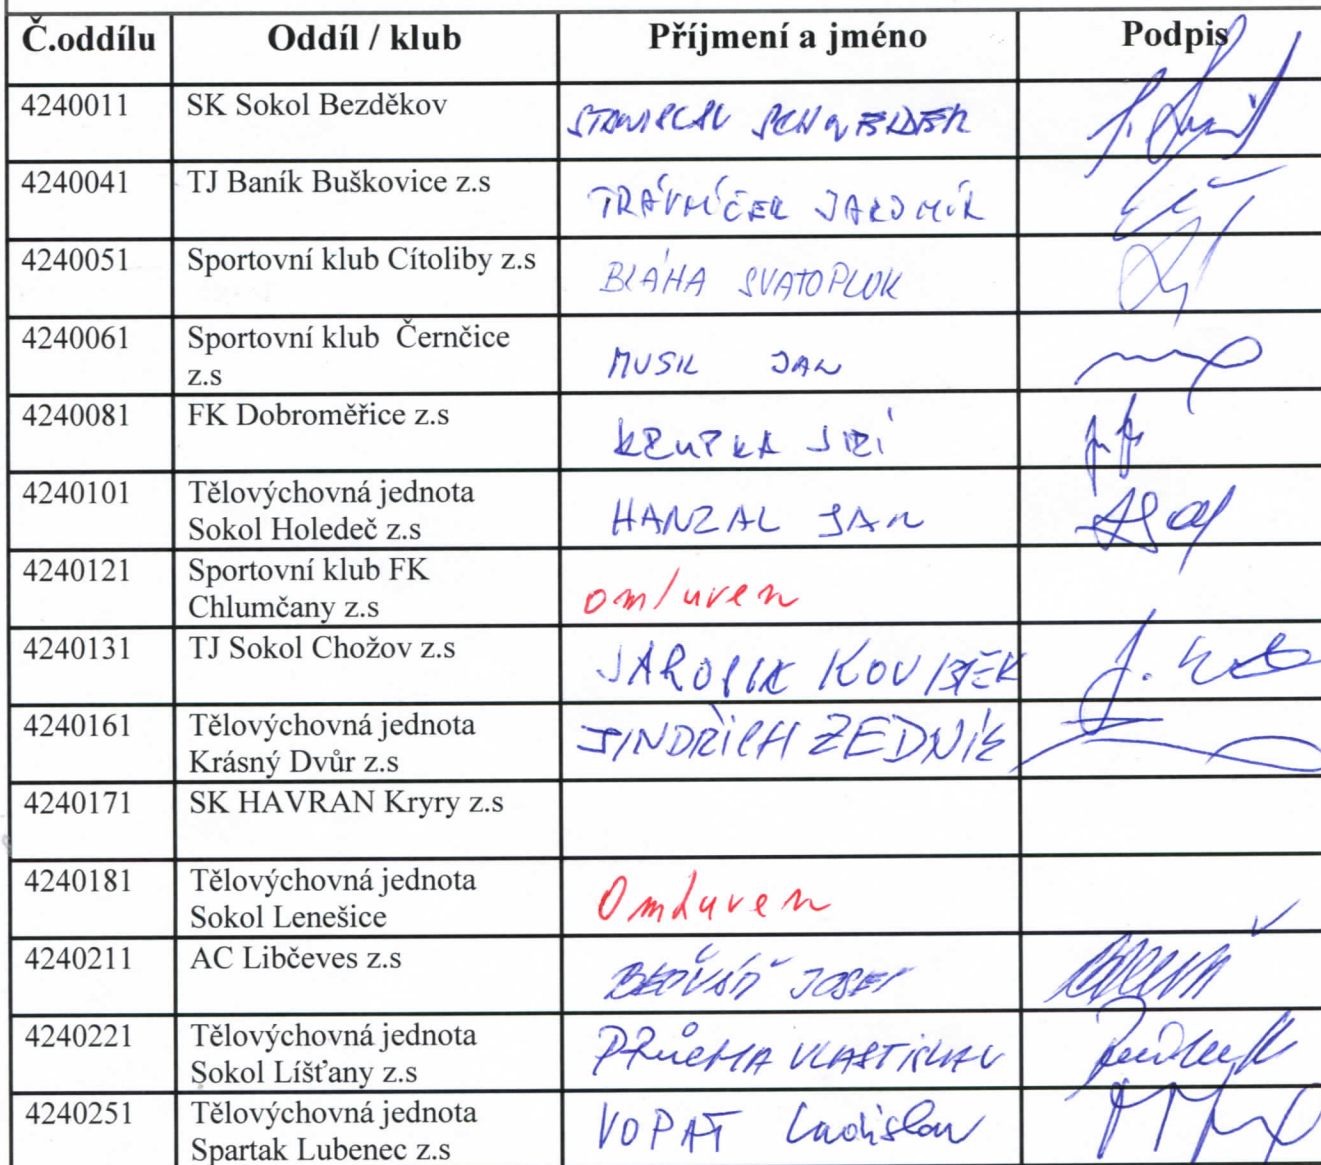 Č.oddílu Oddíl / klub Příjmení a jméno Podpis
4240011 SK Sokol Bezděkov STANISLAV
4240041 TJ Baník Buškovice z.s TRÁVNÍČEK JAROMÍR
4240051 Sportovní klub Cítoliby z.s BLÁHA SVATOPLUK
4240061 Sportovní klub Černčice
z.s MUSIL JAN
4240081 FK Dobroměřice z.s KRUPKA JIŘÍ
4240101 Tělovýchovná jednota
Sokol Holedeč z.s HANZAL JAN
4240121 Sportovní klub FK
Chlumčany z.s omluven
4240131 TJ Sokol Chožov z.s KOUBEK
4240161 Tělovýchovná jednota
Krásný Dvůr z.s JINDŘICH ZEDNÍK
4240171 SK HAVRAN Kryry z.s
4240181 Tělovýchovná jednota
Sokol Lenešice Omluven
4240211 AC Libčeves z.s JOSEF
4240221 Tělovýchovná jednota
Sokol Líšťany z.s PRŮCHA VLASTISLAV
4240251 Tělovýchovná jednota
Spartak Lubenec z.s VOPAT Ladislav